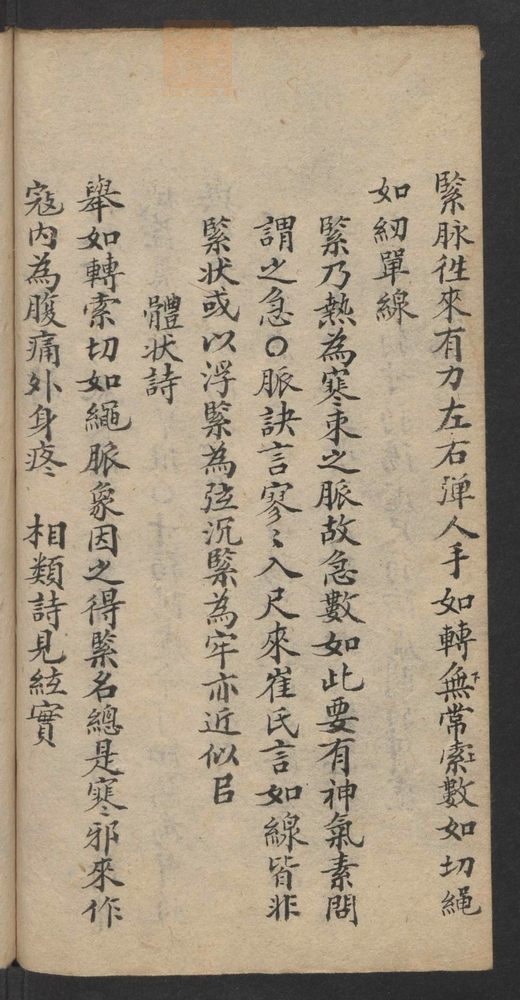 緊脉徃來有力左右弹人手如轉無常索數如切繩
如紉單線
緊乃熱為寒束之脈故急數如此要有神氣素問
謂之急〇脈訣言寥〻入尺來崔氏言如線皆非
緊状或以浮緊為弦沉緊為牢亦近似㠯
體状詩
舉如轉索切如繩脈象因之得緊名總是寒邪來作
寇内為腹痛外身疼 相類詩見絃實